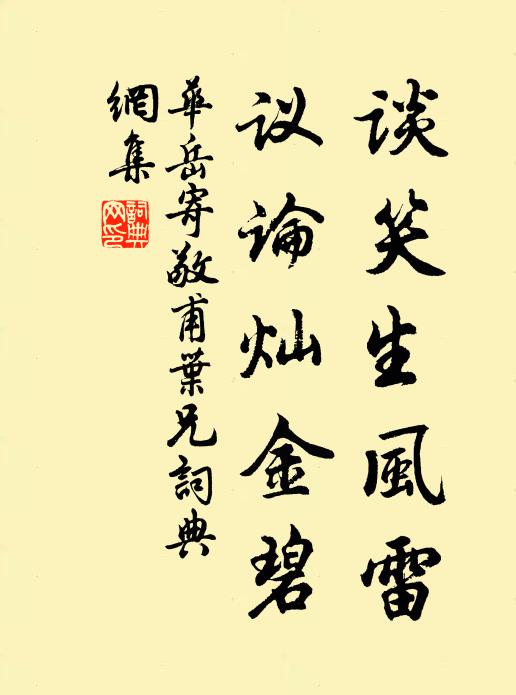 谈笑生風雷
议论灿金碧
華岳寄敬甫葉兄詞典
網集
詞典
网印